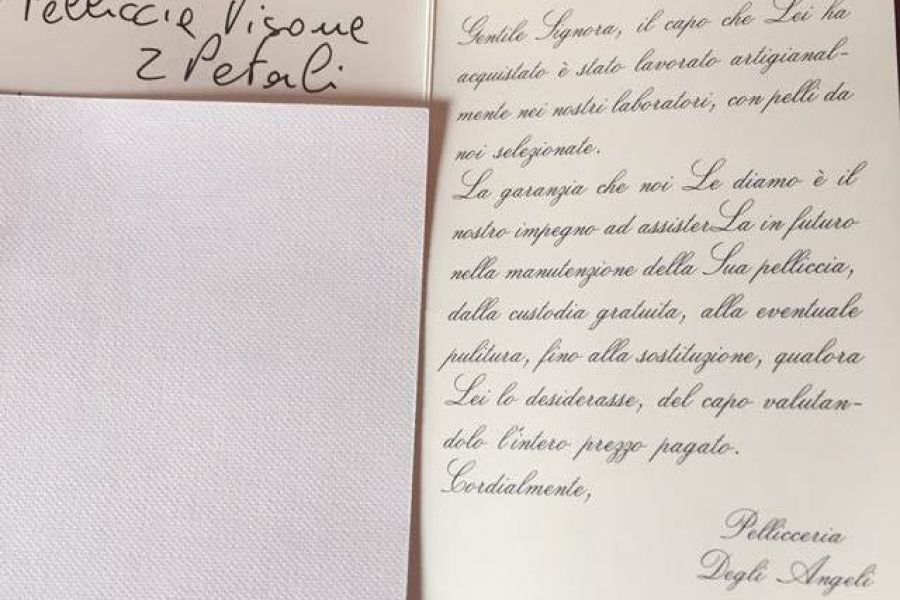 Pelliccia Visone
2 Petali
Gentile Signora, il capo che Lei ha
acquistato è stato lavorato artigianal-
mente nei nostri laboratori, con pelli da
noi selezionate.
La garanzia che noi Le diamo è il
nostro impegno ad assisterLa in futuro
nella manutenzione della Sua pelliccia,
dalla custodia gratuita, alla eventuale
pulitura, fino alla sostituzione, qualora
Lei lo desiderasse, del capo valutan-
dolo l'intero prezzo pagato.
Cordialmente,
Pellicceria
Degli Angeli